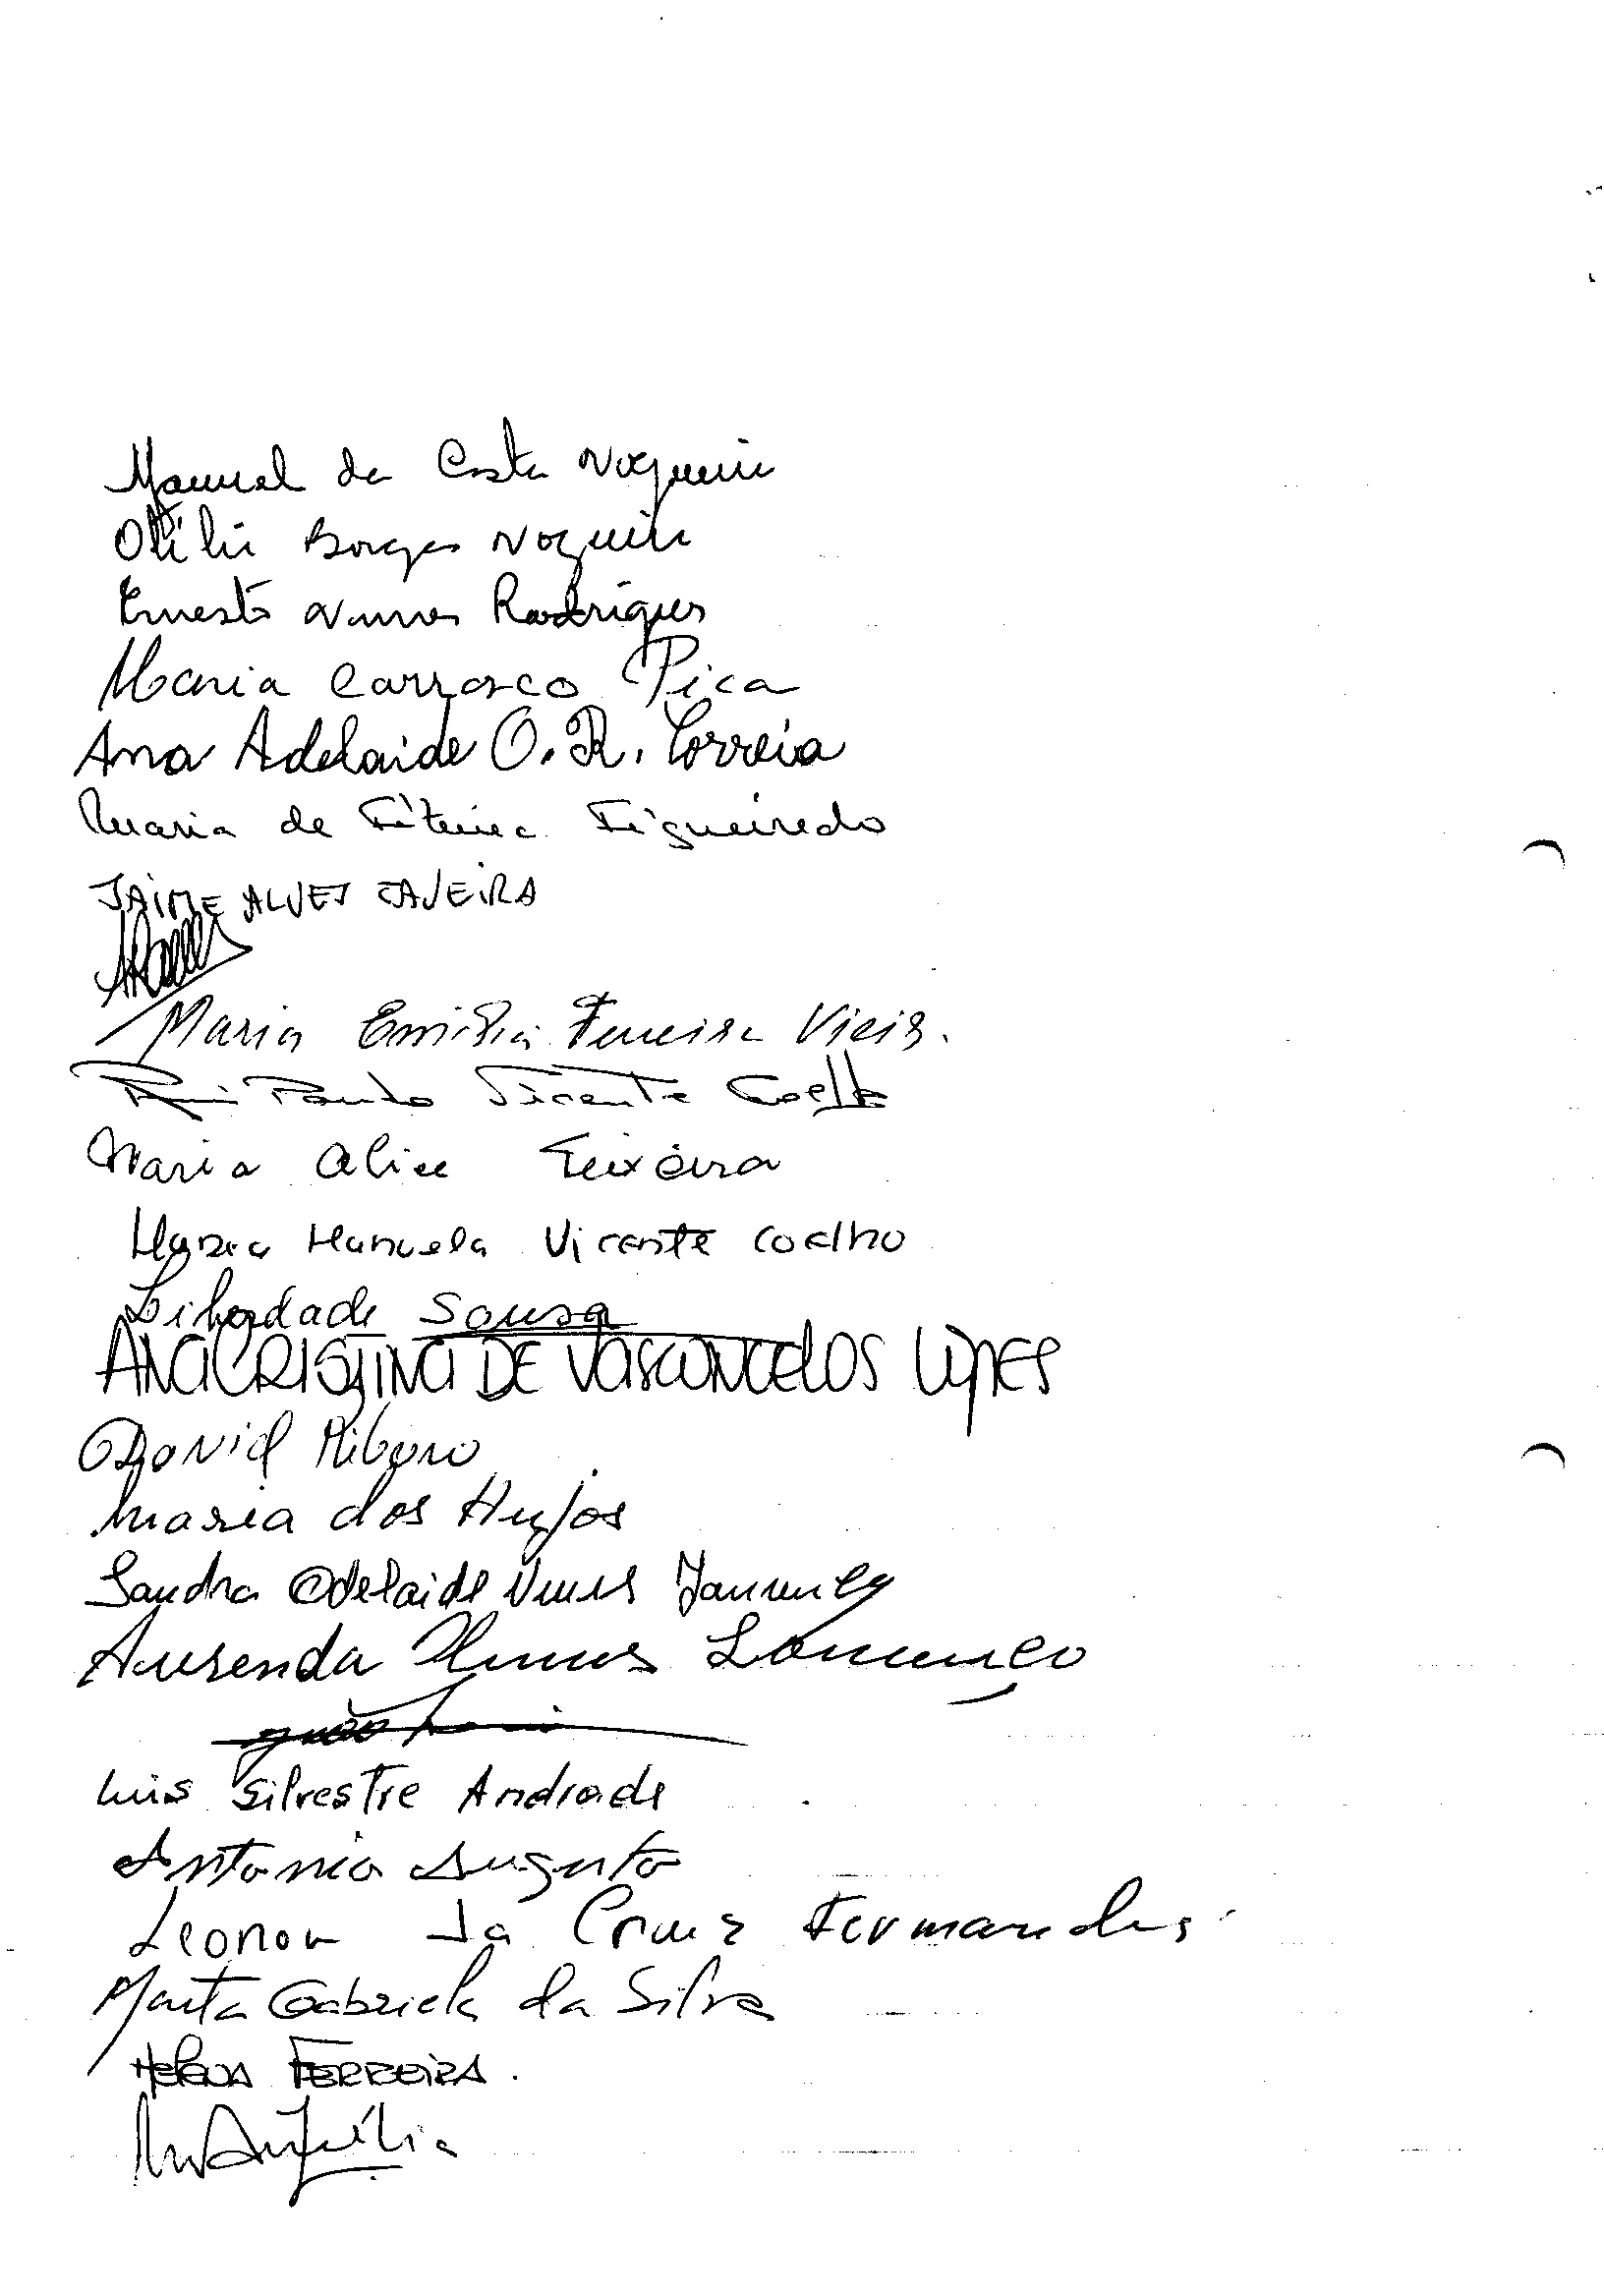 Manuel da Costa Nogueira
Otília Borges Nogueira
Ernesto Nunes Rodrigues
Maria Carrasco Pica
Ana Adelaide O. R. Correia
Maria de Fátima Figueiredo
JAIME ALVES CAVEIRA
Maria Emília Ferreira Vieira.
Rui Paulo Vicente Coelho
Maria Alice Teixeira
Maria Manuela Vicente Coelho
Liberdade Sousa
ANA CRISTINA DE VASCONCELOS LOPES
David Ribeiro
Maria dos Anjos
Sandra Adelaide Nunes
Ausenda Nunes Lourenço
Luis Silvestre Andrade
Antonio Augusto
Leonor da Cruz Fernandes
Marta Gabriela da Silva
HELENA FERREIRA.